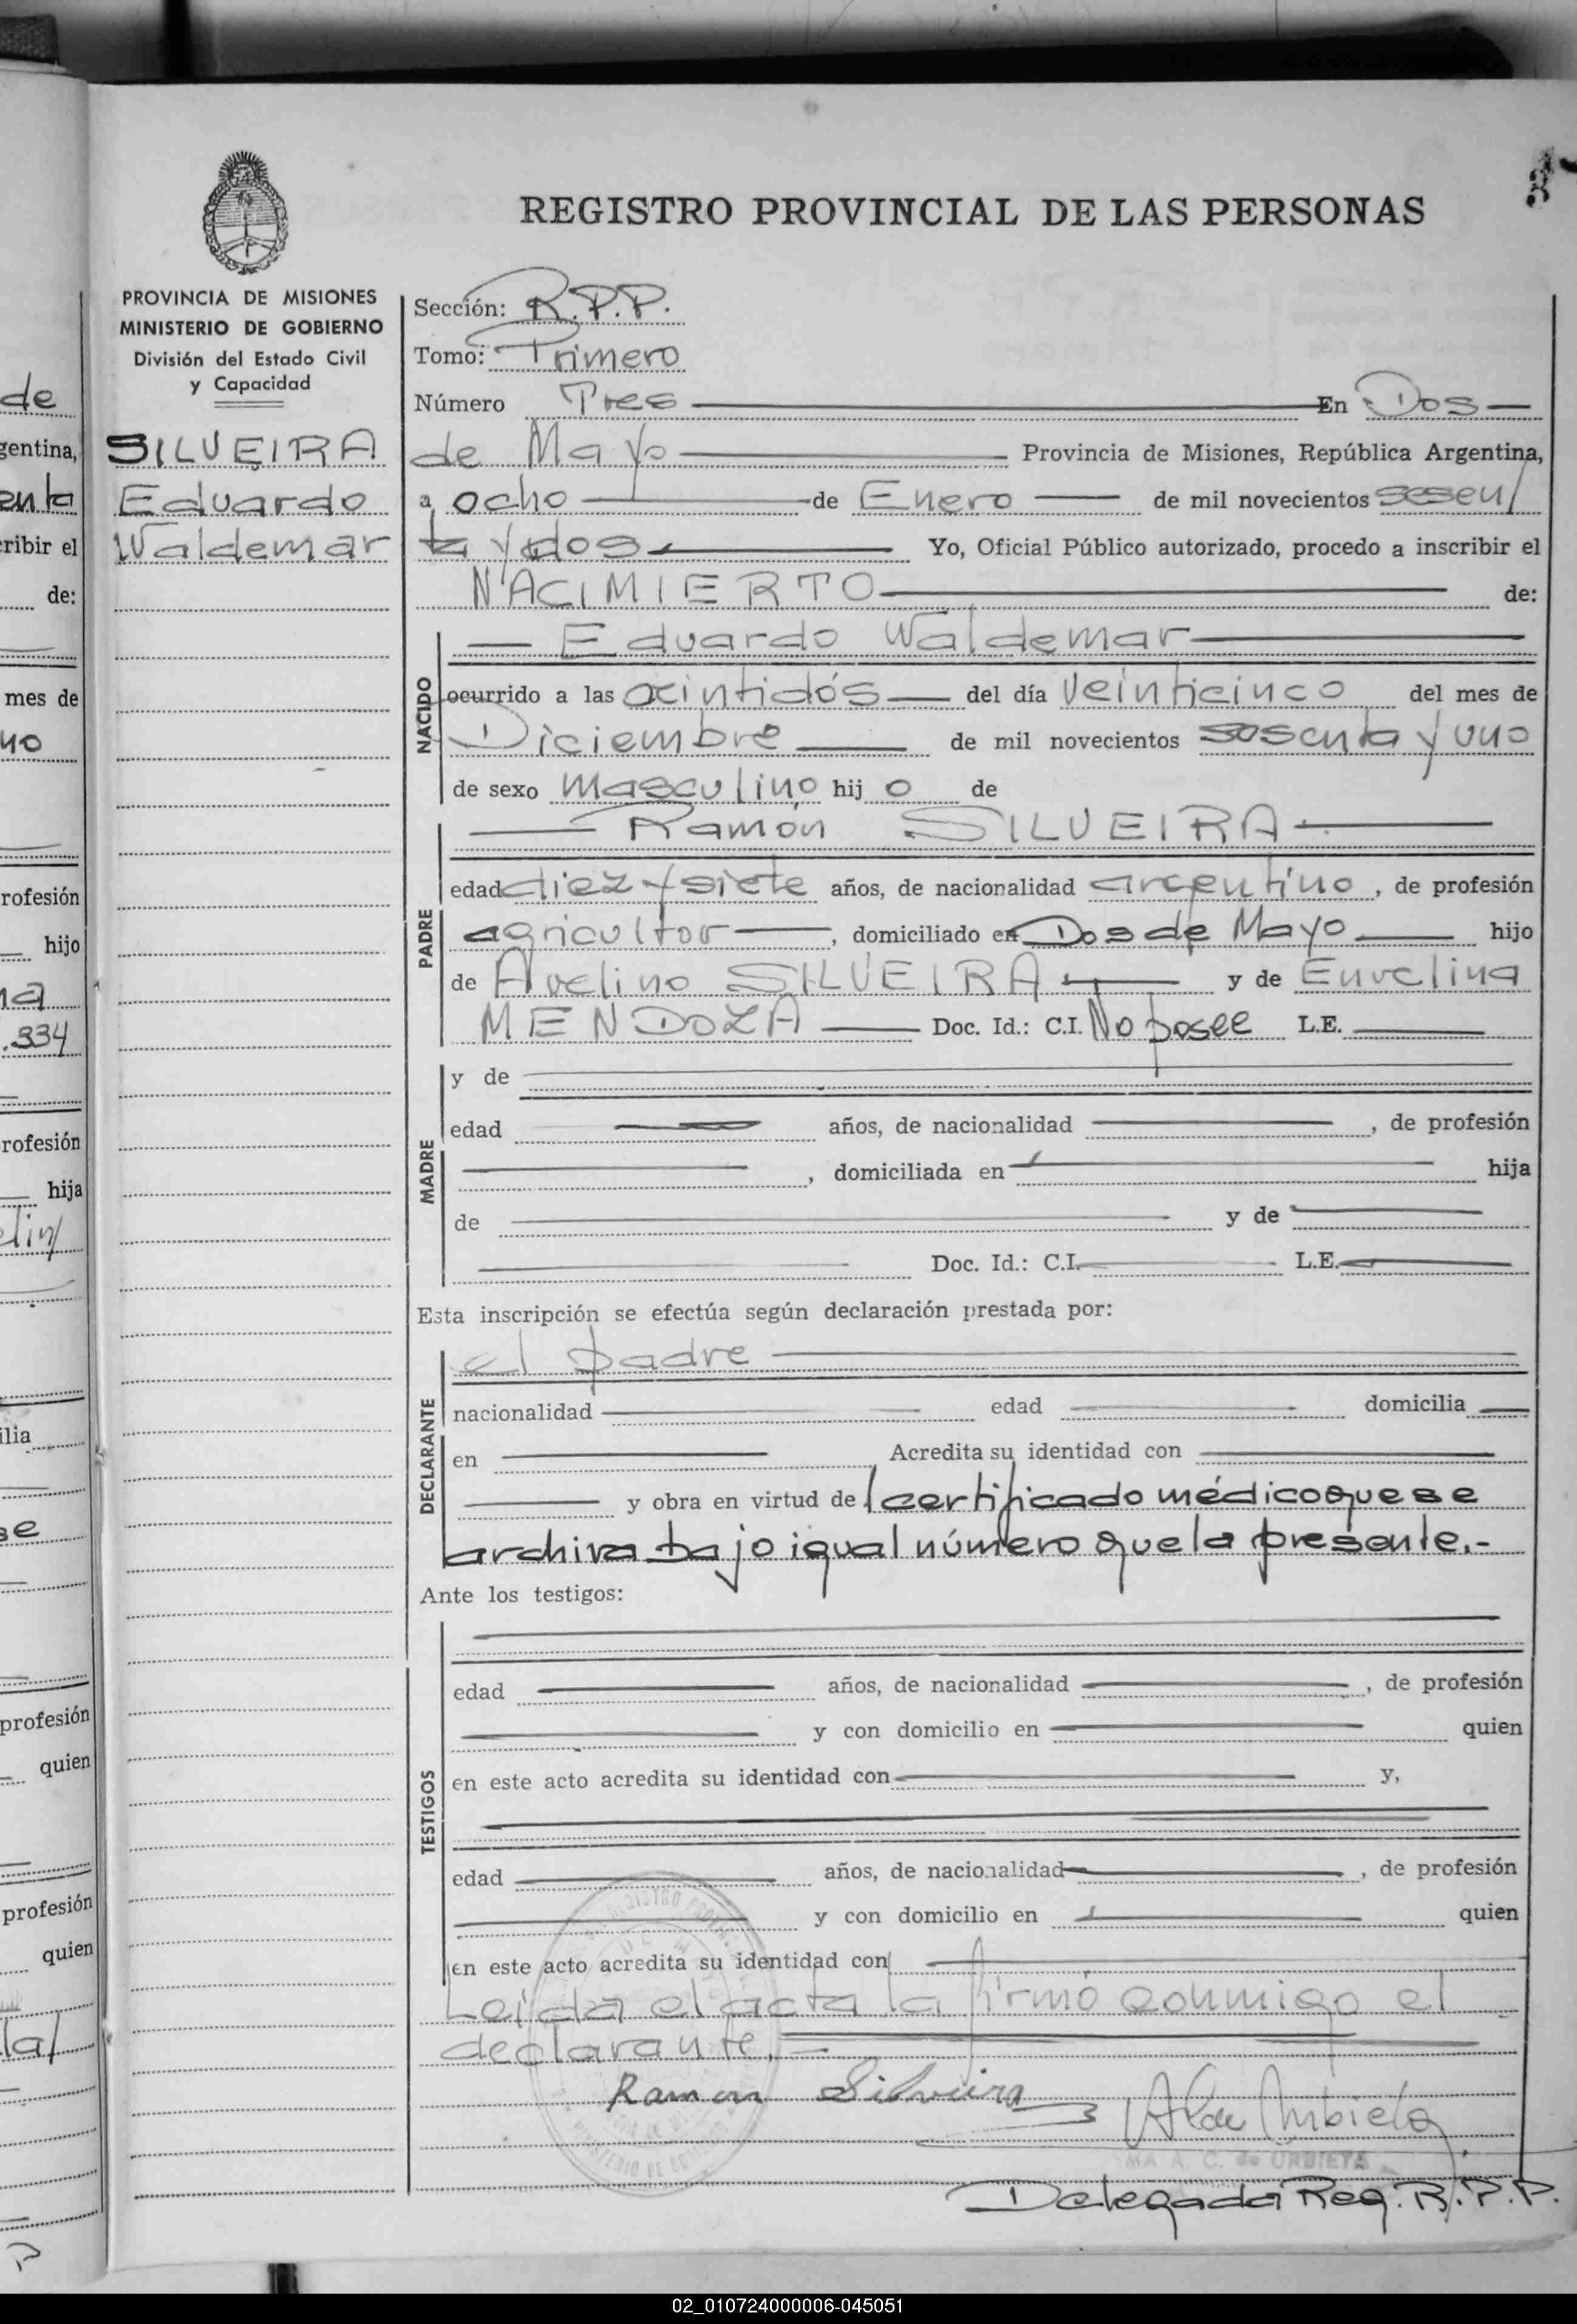 REGISTRO PROVINCIAL DE LAS PERSONAS
PROVINCIA DE MISIONES
MINISTERIO DE GOBIERNO
División del Estado Civil
y Capacidad
SILVEIRA
Eduardo
Waldemar
Sección: R.P.P.
Tomo: Primero
Número Tres En Dos
de Mayo Provincia de Misiones, República Argentina,
a ocho de Enero de mil novecientos sesen/
ta y dos Yo, Oficial Público autorizado, procedo a inscribir el
NACIMIERTO de:
NACIDO
Eduardo Waldemar
ocurrido a las del día veinticinco del mes de
Diciembre de mil novecientos sesenta y uno
de sexo masculino hij o de
PADRE
Ramón SILVEIRA
edad diez y siete años, de nacionalidad argentino, de profesión
agricultor, domiciliado en Dos de Mayo hijo
de Avelino SILVEIRA y de Euvelina
MENDOZA Doc. Id.: C.I. No posee L.E.
MADRE
y de
edad años, de nacionalidad , de profesión
, domiciliada en hija
de y de
Doc. Id.: C.I. L.E.
Esta inscripción se efectúa según declaración prestada por:
DECLARANTE
el padre
nacionalidad edad domicilia
en Acredita su identidad con
y obra en virtud de certificado médico que se
archiva bajo igual número que la presente.-
Ante los testigos:
TESTIGOS
edad años, de nacionalidad , de profesión
y con domicilio en quien
en este acto acredita su identidad con y,
edad años, de nacionalidad , de profesión
y con domicilio en quien
en este acto acredita su identidad con
Leída el acta la firmó conmigo el
declarante.-
Ramon Silveira
MA A. C. de URBIETA
Delegada Reg. R.P.P.
de
gentina,
enta
ribir el
de:
mes de
no
rofesión
hijo
na
.334
rofesión
hija
elin/
ilia
se
profesión
quien
profesión
quien
la/
02_010724000006-045051